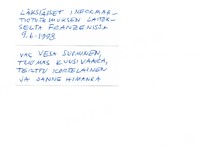 LÄKSIÄISET INFORMAA-
TIOTUTKIMUKSEN LAITOK-
SELTA FRANZENISSA
9.6.1998
VAS VESA SUOMINEN,
TUOMAS KUUSIVAARA,
TERTTU KORTELAINEN
JA SANNE HIMANKA